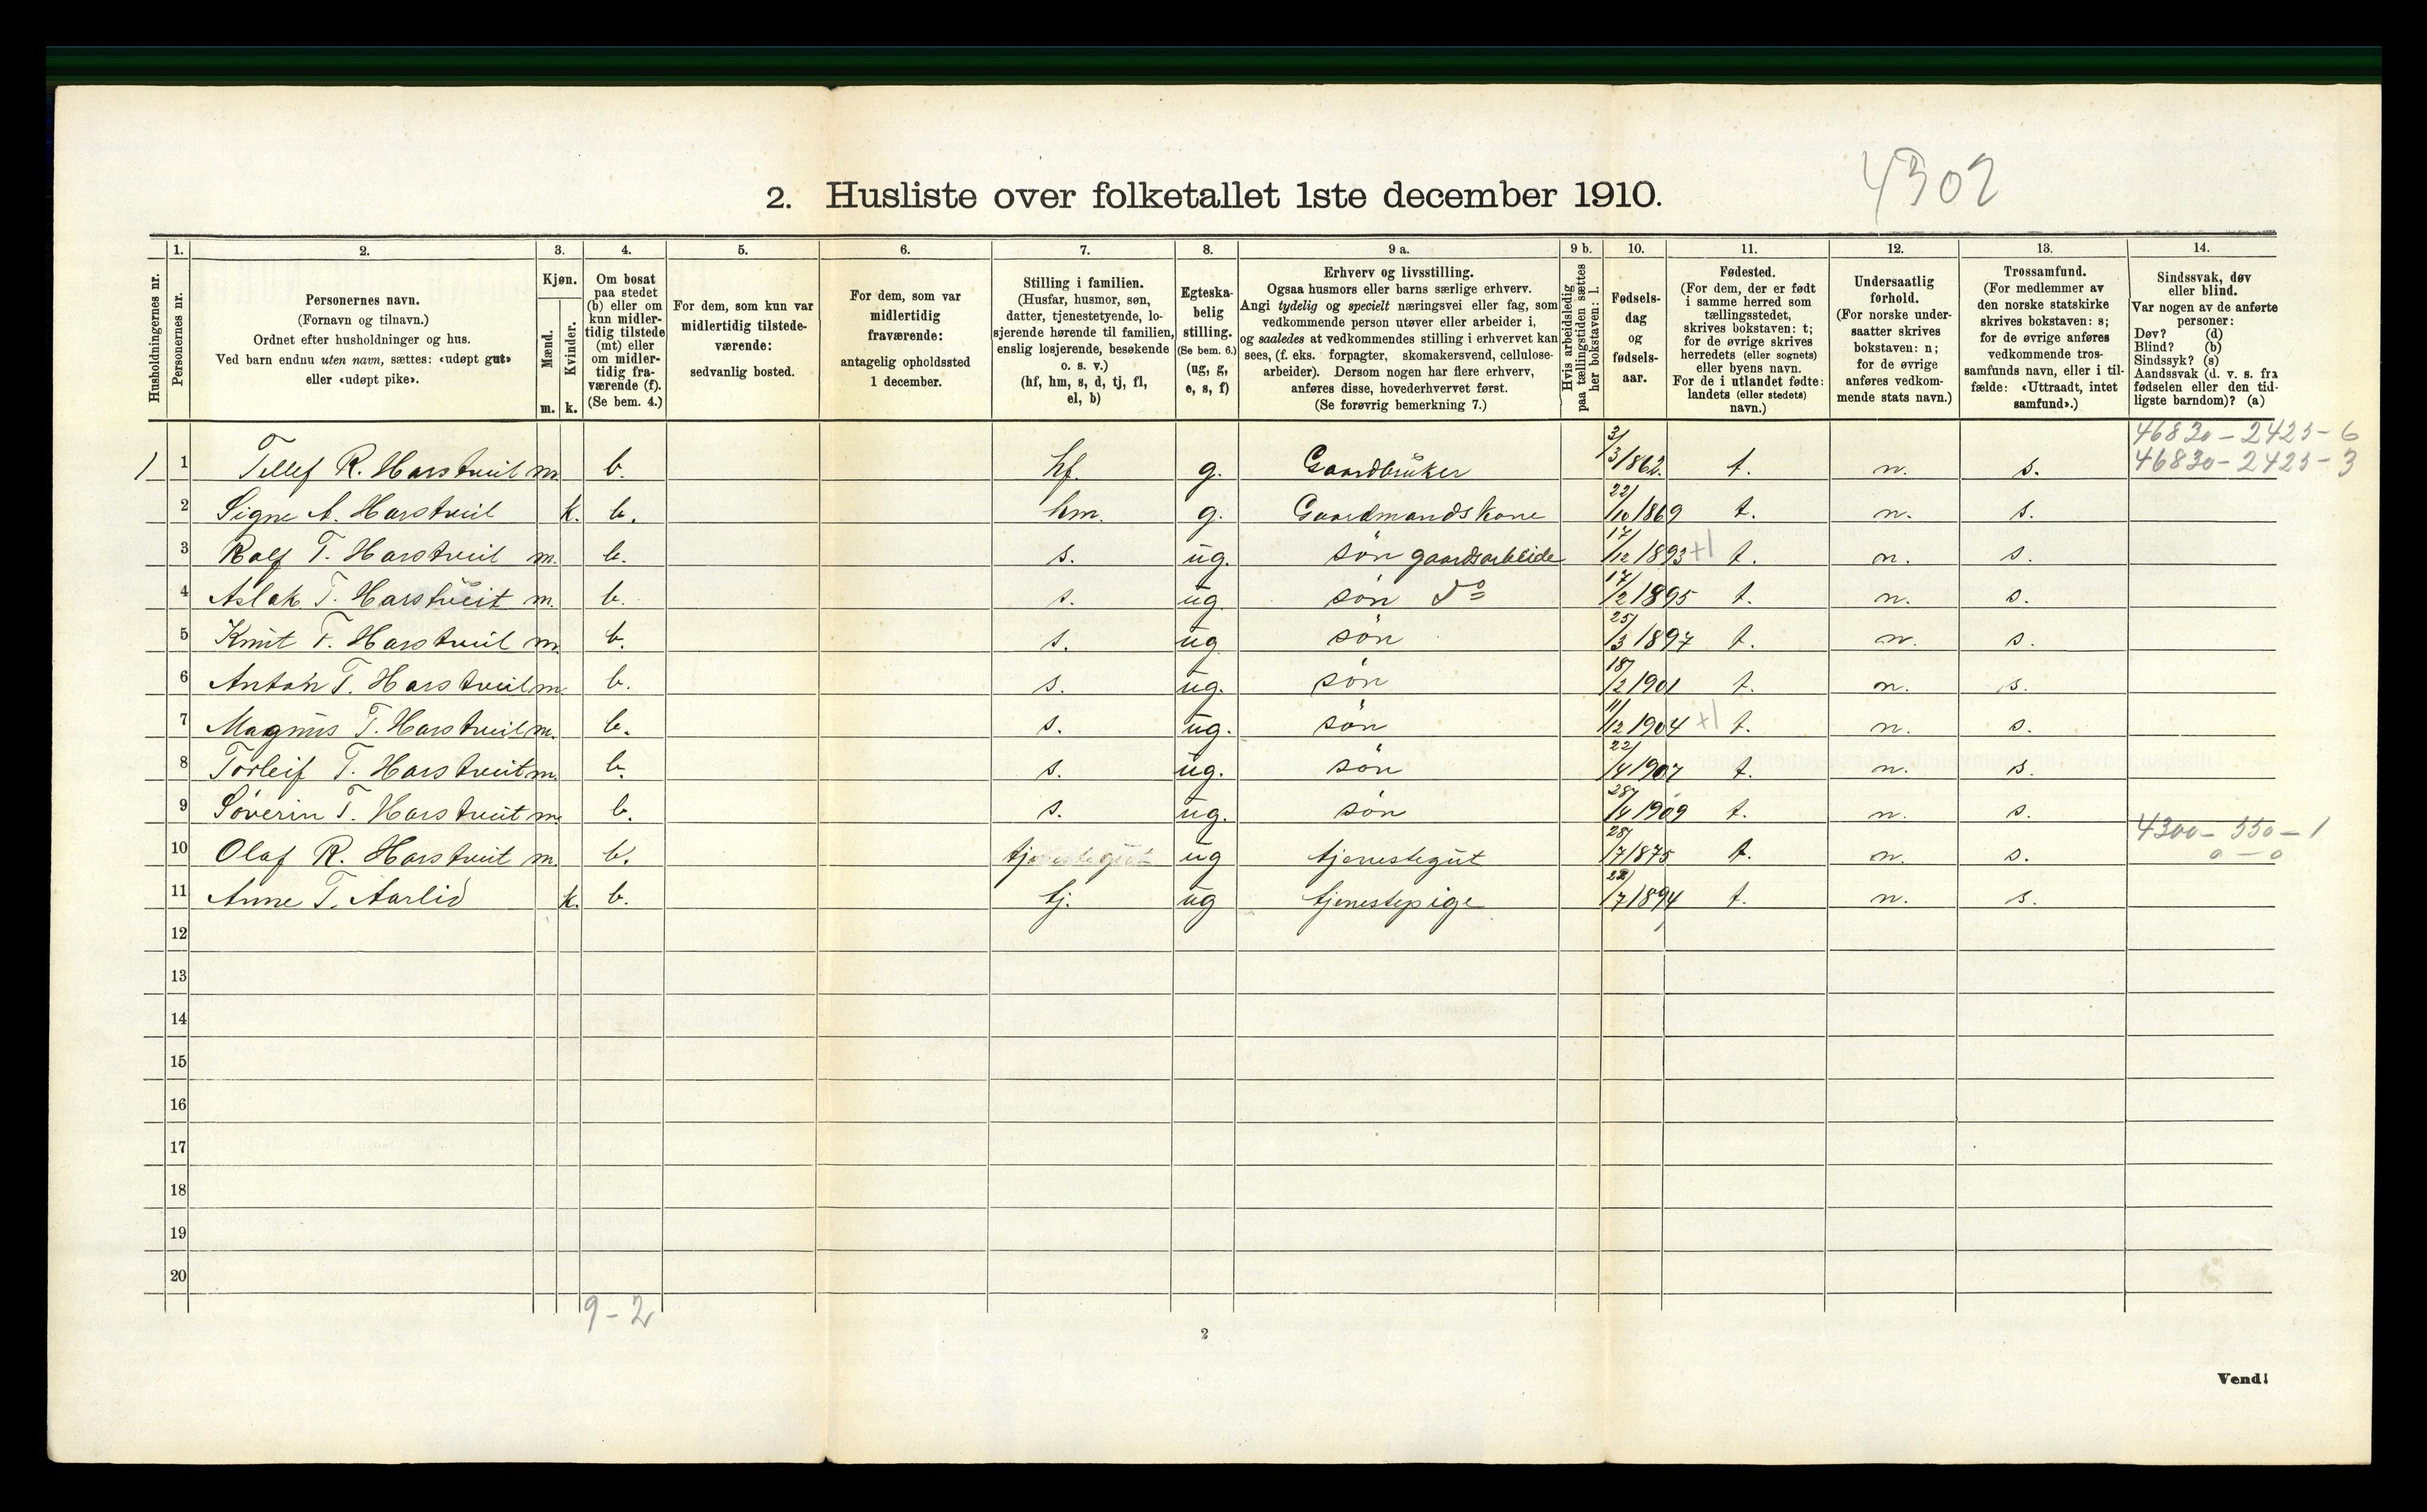 4302
2. Husliste over folketallet 1ste december 1910.
1. 2. 3. 4. 5. 6. 7. 8. 9 a. 9 b. 10. 11. 12. 13. 14.
Husholdningernes nr.
Personernes nr.
Personernes navn.
(Fornavn og tilnavn.)
Ordnet efter husholdninger og hus.
Ved barn endnu uten navn, sættes: «udøpt gut»
eller «udøpt pike».
Kjøn.
Mænd.
Kvinder.
m. k.
Om bosat
paa stedet
(b) eller om
kun midler-
tidig tilstede
(mt) eller
om midler-
tidig fra-
værende (f).
(Se bem. 4.)
For dem, som kun var
midlertidig tilstede-
værende:
sedvanlig bosted.
For dem, som var
midlertidig
fraværende:
antagelig opholdssted
1 december.
Stilling i familien.
(Husfar, husmor, søn,
datter, tjenestetyende, lo-
sjerende hørende til familien,
enslig losjerende, besøkende
o. s. v.)
(hf, hm, s, d, tj, fl,
el, b)
Egteska-
belig
stilling.
(Se bem. 6.)
(ug, g,
e, s, f)
Erhverv og livsstilling.
Ogsaa husmors eller barns særlige erhverv.
Angi tydelig og specielt næringsvei eller fag, som
vedkommende person utøver eller arbeider i,
og saaledes at vedkommendes stilling i erhvervet kan
sees, (f. eks. forpagter, skomakersvend, cellulose-
arbeider). Dersom nogen har flere erhverv,
anføres disse, hovederhvervet først.
(Se forøvrig bemerkning 7.)
Hvis arbeidsledig
paa tællingstiden sættes
her bokstaven: l.
Fødsels-
dag
og
fødsels-
aar.
Fødested.
(For dem, der er født
i samme herred som
tællingsstedet,
skrives bokstaven: t;
for de øvrige skrives
herredets (eller sognets)
eller byens navn.
For de i utlandet fødte:
landets (eller stedets)
navn.)
Undersaatlig
forhold.
(For norske under-
saatter skrives
bokstaven: n;
for de øvrige
anføres vedkom-
mende stats navn.)
Trossamfund.
(For medlemmer av
den norske statskirke
skrives bokstaven: s;
for de øvrige anføres
vedkommende tros-
samfunds navn, eller i til-
fælde: «Uttraadt, intet
samfund».)
Sindssvak, døv
eller blind.
Var nogen av de anførte
personer:
Døv? (d)
Blind? (b)
Sindssyk? (s)
Aandssvak (d. v. s. fra
fødselen eller den tid-
ligste barndom)? (a)
46830 - 2425 - 6
1 1 Tellef R. Harstveit m. b. hf. g. Gaardbruker 3/3 1862. t. n. s. 46830 - 2425 - 3
2 Signe A. Harstveit k. b. hm. g. Gaardmandskone 22/10 1869 t. n. s.
3 Rolf T. Harstveit m. b. s. ug. søn gaardsarbeide 17/12 1893 +1 t. n. s.
4 Aslak T. Harstveit m. b. s. ug. søn do 17/2 1895 t. n. s.
5 Knut T. Harstveit m. b. s. ug søn 25/3 1897 t. n. s.
6 Anton T. Harstveit m. b. s. ug. søn 18/2 1901 t. n. s.
7 Magnus T. Harstveit m. b. s. ug. søn 11/12 1904 +1 t. n. s.
8 Torleif T. Harstveit m. b. s. ug. søn 22/4 1907 t. n. s.
9 Søverin T. Harstveit m. b. s. ug. søn 28/4 1909 t. n. s.
4300 - 550 - 1
10 Olaf R. Harstveit m. b. tjenestegut ug tjenestegut 28/7 1875 t. n. s. 0 - 0
11 Anne T. Aarlid k. b. tj. ug tjenestepige 22/7 1894 t. n. s.
12
13
14
15
16
17
18
19
20
9 - 2
2
Vend!